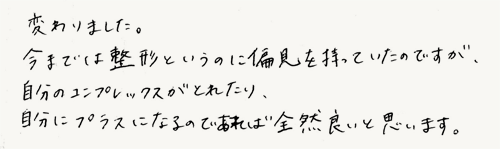 変わりました。
今までは整形というのに偏見を持っていたのですが、
自分のコンプレックスがとれたり、
自分にプラスになるのであれば全然良いと思います。